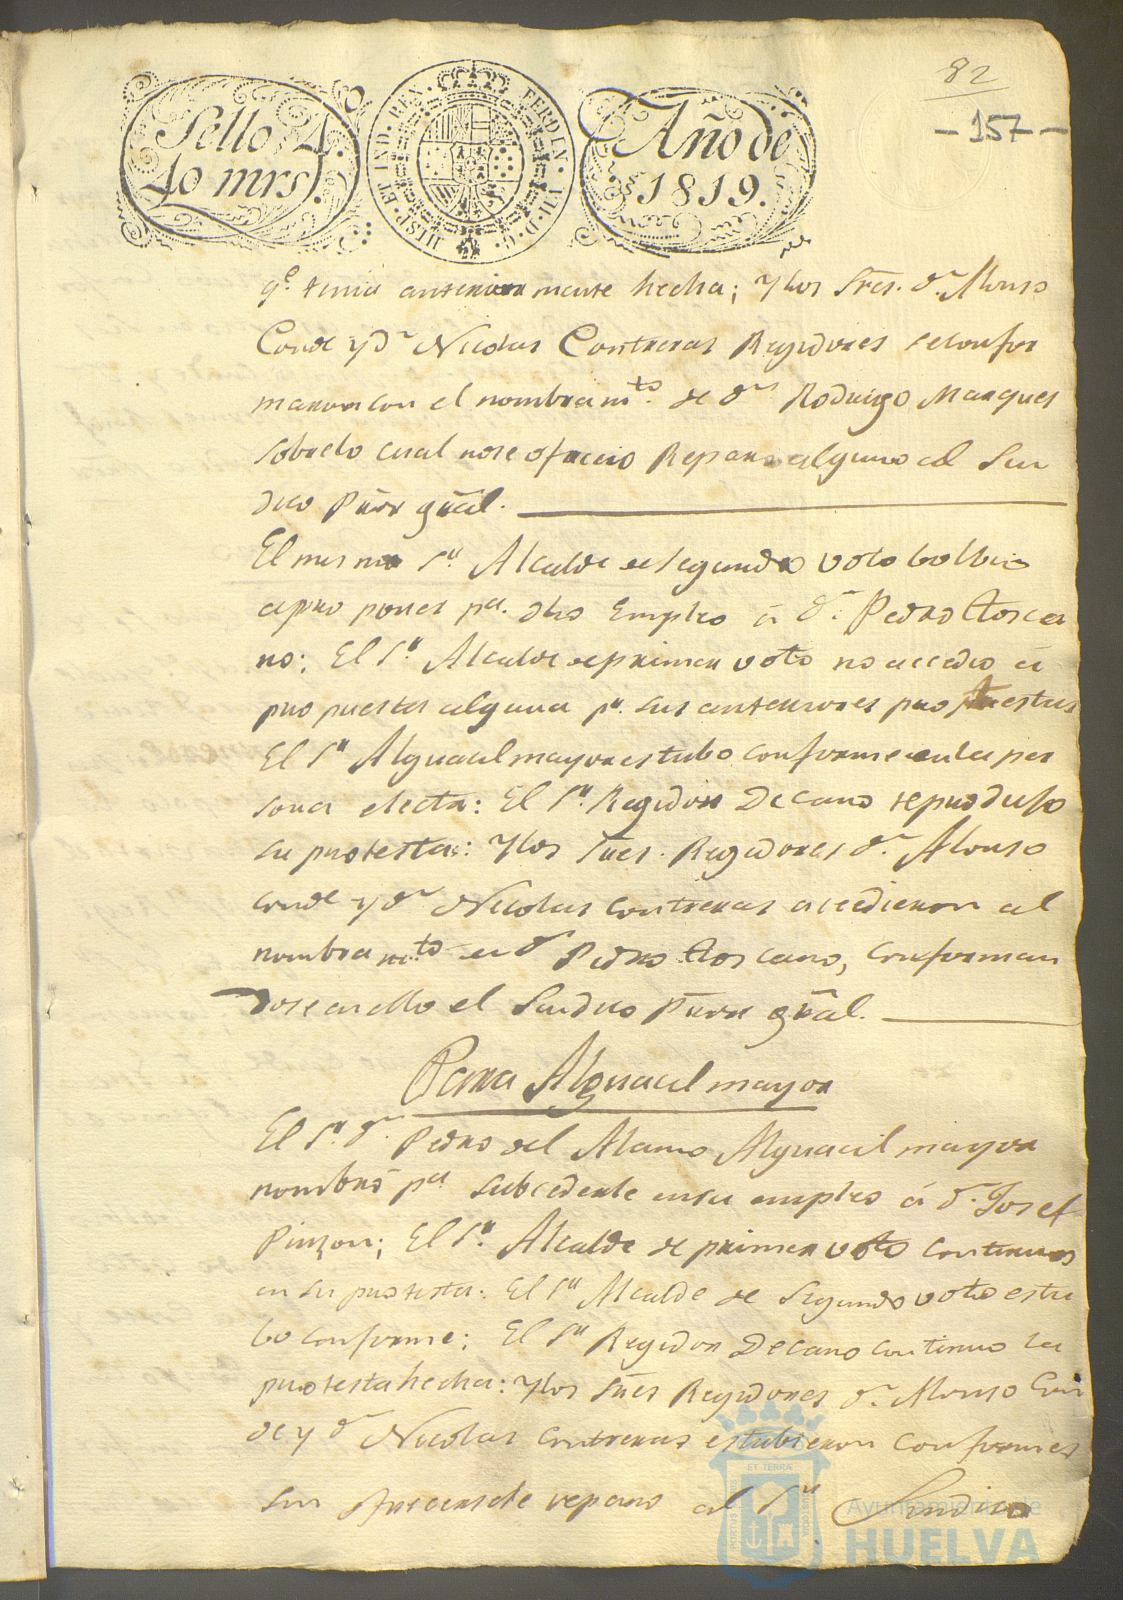 82
-157-
Sello 4.
40 mrs.
HISP. ET IND. REX. FERDIN. VII. D. G.
Año de
1819.
qe. tenia anteriormente hecha; y los Sres. dn. Alonso
Conde y Dn Nicolas Contreras Regidores se confor
maron con el nombramto. de dn Rodrigo Marques
sobre lo cual no se ofrecio Reparo alguno al Sin
dico Pũrr gũal.
El mismo Sr. Alcalde de segundo voto bolbio
a proponer pa. dho Empleo á dn. Pedro Tosca
no; El Sr. Alcalde de primer voto no accedio á
propuesta alguna pr. sus anteriores protestas
El Sr Alguacil mayor estubo conforme en la per
sona electa: El Sr. Regidor Decano reprodujo
su protesta: y los Sres. Regidores dn. Alonso
Conde y dn Nicolas Contreras accedieron al
nombramto en dn Pedro Toscano, conforman
dose en ello el Sindico Pũrr gũal.
Para Alguacil mayor
El Sr. dn. Pedro del Alamo Alguacil mayor
nombró pa subcederle en su empleo á dn. Josef
Pinzon; El Sr. Alcalde de primer voto continuó
en su protesta: El Sr Alcalde de Segundo voto estu
bo conforme; El Sr Regidor Decano continuo la
protesta hecha: y los Sres Regidores dn. Alonso Con
de y dn Nicolas Contreras estubieron conformes
sin ofrecersele reparo al Sr Sindico
ET TERRÆ
PORTUS MARIS
CUSTODIA
Ayuntamiento de
HUELVA